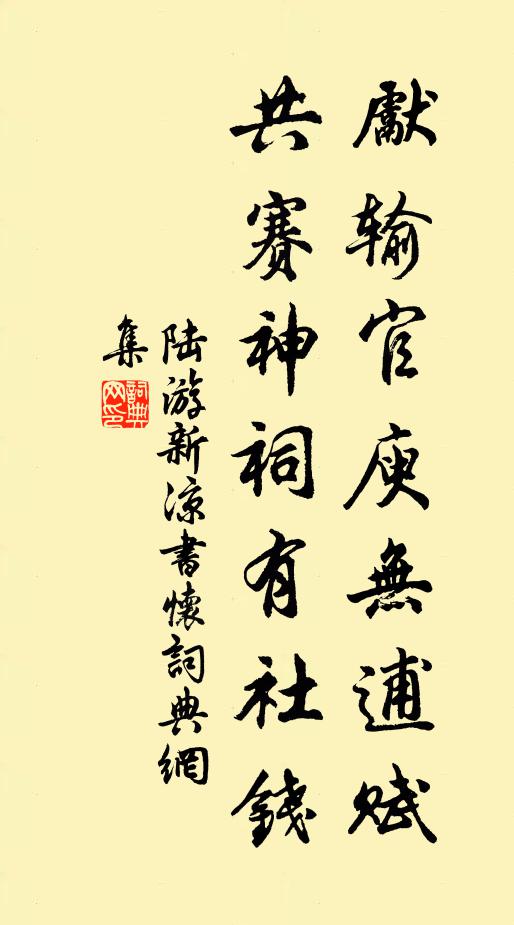 獻輸官庾無逋賦
共賽神祠有社錢
陸游新涼書懷詞典網
集
詞典
网印